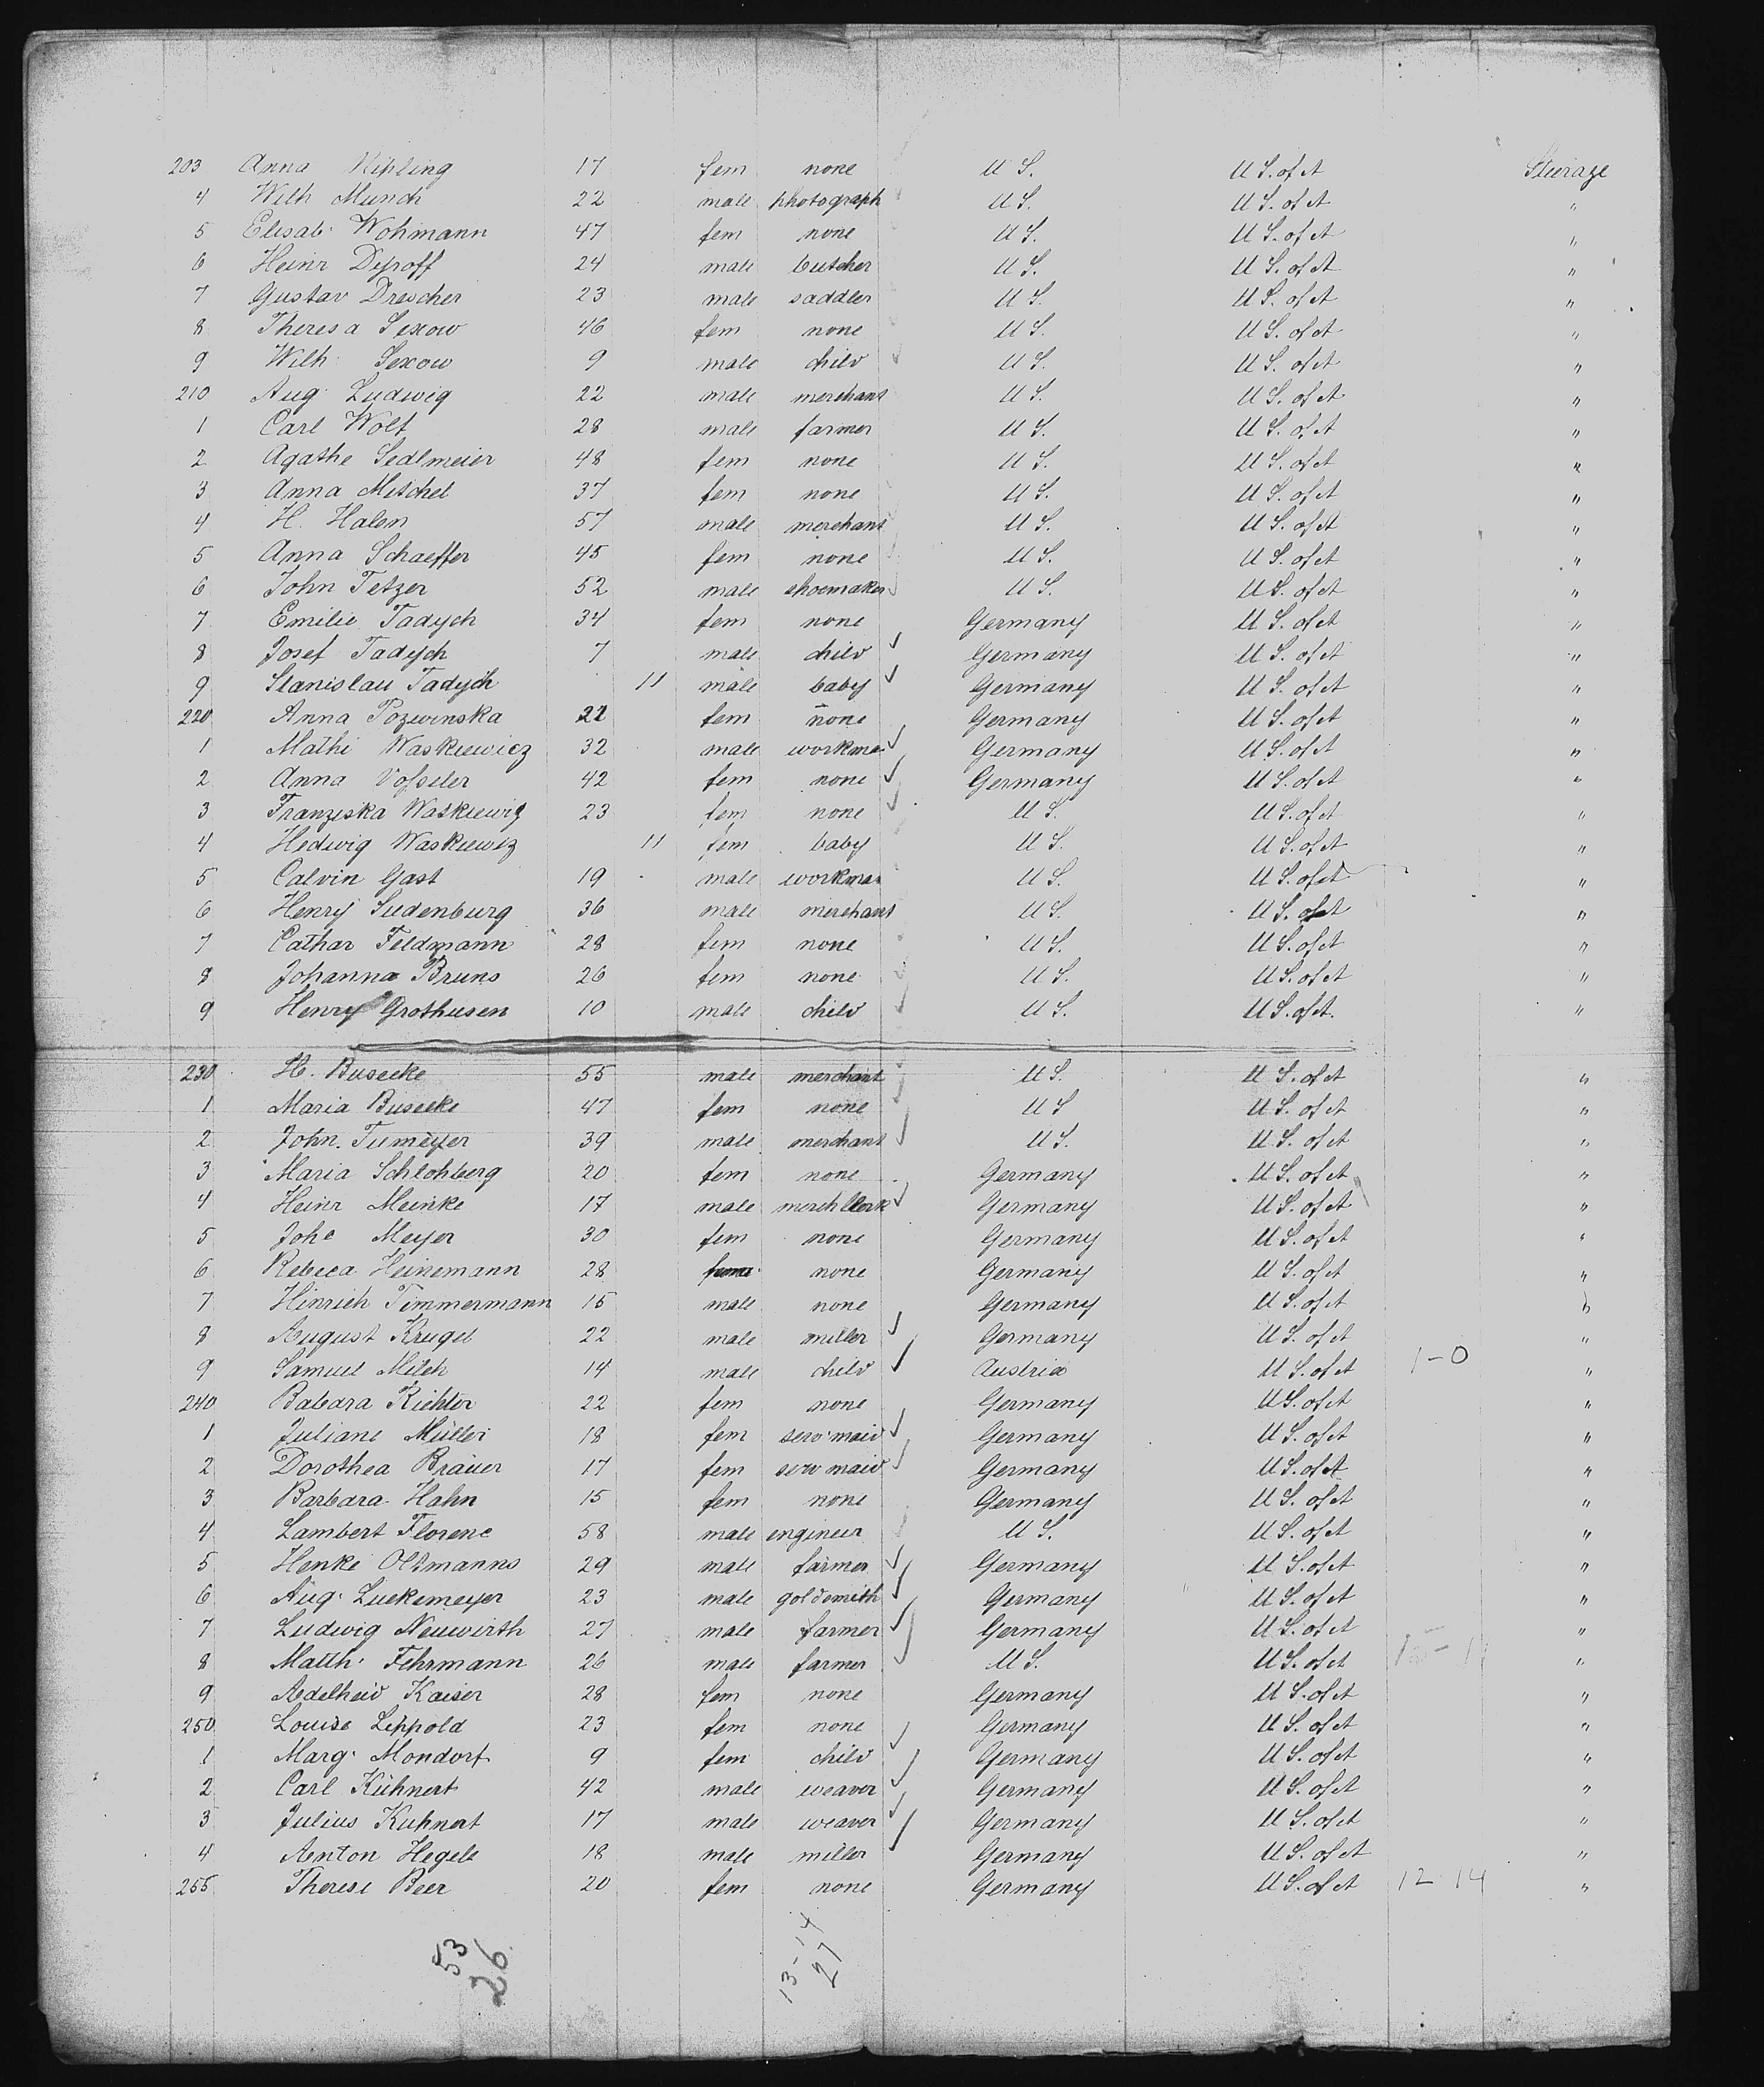 203 Anna Kipling 17 fem none U S. U S. of A Steerage
4 Wilh Munch 22 male photograph U S. U S. of A "
5 Elisab. Wohmann 47 fem none U S. U S. of A "
6 Heinr Dyroff 24 male butcher U S. U S. of A "
7 Gustav Drescher 23 male saddler U S. U S. of A "
8 Theresa Sexow 46 fem none U S. U S. of A "
9 Wilh. Sexow 9 male child U S. U S. of A "
210 Aug. Ludwig 22 male merchant U S. U S. of A "
1 Carl Wolf 28 male farmer U S. U S. of A "
2 Agathe Sedlmeier 48 fem none U S. U S. of A "
3 Anna Mitschel 37 fem none U S. U S. of A "
4 H. Halem 57 male merchant U S. U S. of A "
5 Anna Schaeffer 45 fem none U S. U S. of A "
6 John Tetzer 52 male shoemaker U S. U S. of A "
7 Emilie Tadych 34 fem none Germany U S. of A "
8 Josef Tadych 7 male child Germany U S. of A "
9 Stanislau Tadych 11 male baby Germany U S. of A "
220 Anna Pozwinska 22 fem none Germany U S. of A "
1 Mathi Waskiewicz 32 male workman Germany U S. of A "
2 Anna Vosseler 42 fem none Germany U S. of A "
3 Franziska Waskiewiz 23 fem none U S. U S. of A "
4 Hedwig Waskiewiz 11 fem baby U S. U S. of A "
5 Calvin Gast 19 male workman U S. U S. of A "
6 Henry Sudenburg 36 male merchant U S. U S. of A "
7 Cathar Feldmann 28 fem none U S. U S. of A "
8 Johanna Bruns 26 fem none U S. U S. of A "
9 Henry Grothusen 10 male child U S. U S. of A. "
230 H. Busecke 55 male merchant U S. U S. of A "
1 Maria Busecke 47 fem none U S U S. of A "
2 John. Tumeyer 39 male merchant U S. U S. of A "
3 Maria Schlohberg 20 fem none Germany U S. of A "
4 Heinr Meinke 17 male merch Clerk Germany U S. of A "
5 Johe Meyer 30 fem none Germany U S. of A "
6 Rebeca Heinemann 28 none Germany U S. of A "
7 Hinrich Timmermann 15 male none Germany U S. of A "
8 August Krugel 22 male miller Germany U S. of A "
9 Samuel Milch 14 male child Austria U S. of A 1-0 "
240 Babara Richter 22 fem none Germany U S. of A "
1 Juliane Müller 18 fem serv. maid Germany U S. of A "
2 Dorothea Brauer 17 fem serv maid Germany U S. of A "
3 Barbara Hahn 15 fem none Germany U S. of A "
4 Lambert Florene 58 male engineer U S. U S. of A "
5 Henke Oltmanns 29 male farmer Germany U S. of A "
6 Aug. Luekemeyer 23 male goldsmith Germany U S. of A "
7 Ludwig Neuwirth 27 male farmer Germany U S. of A "
8 Matth. Fehrmann 26 male farmer U S. U S. of A "
9 Adelheid Kaiser 28 fem none Germany U S. of A "
250 Louise Leppold 23 fem none Germany U S. of A "
1 Marg. Mondorf 9 fem child Germany U S. of A "
2 Carl Kühnert 42 male weaver Germany U S. of A "
3 Julius Kuhnert 17 male weaver Germany U S. of A "
4 Anton Hegele 18 male miller Germany U S. of A "
255 Therese Beer 20 fem none Germany U S. of A 12 14 "
53
26
13-14
27